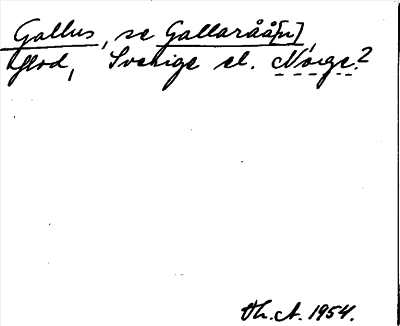 Gallus, se Gallaråå[n],
flod, Sverige el. Norge?
Th. A. 1954.